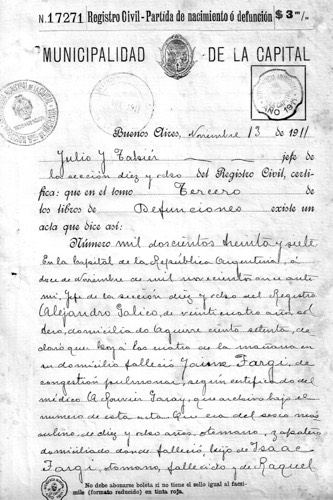 N. 17271 Registro Civil - Partida de nacimiento ó defunción $ 3 m/n
MUNICIPALIDAD DE LA CAPITAL
Buenos Aires, Noviembre 13 de 1911
Julio Y jefe de
la sección diez y ocho del Registro Civil, certi-
fica: que en el tomo Tercero de
los libros de Defunciones existe un
acta que dice así:
Número mil doscientos treinta y siete
En la Capital de la República Argentina, á
doce de Noviembre de mil novecientos once ante
mi, Jefe de la sección diez y ocho del Registro
Alejandro Galico, de veinticuatro años, sol
tero, domiciliado Aguirre ciento setenta, de
claró que hoy á las cuatro de la mañana en
su domicilio falleció Jaime Fargi, de
congestión pulmonar, según certificado del
médico A archivo bajo el
numero de esta acta. Que era del sexo mas
culino, de diez y ocho años, otomano, zapatero
domiciliado donde falleció, hijo de Isaac
Fargi, otomano, fallecido y de Raquel
No debe abonarse boleta si no tiene el sello igual al facsí-
mile (formato reducido) en tinta roja.